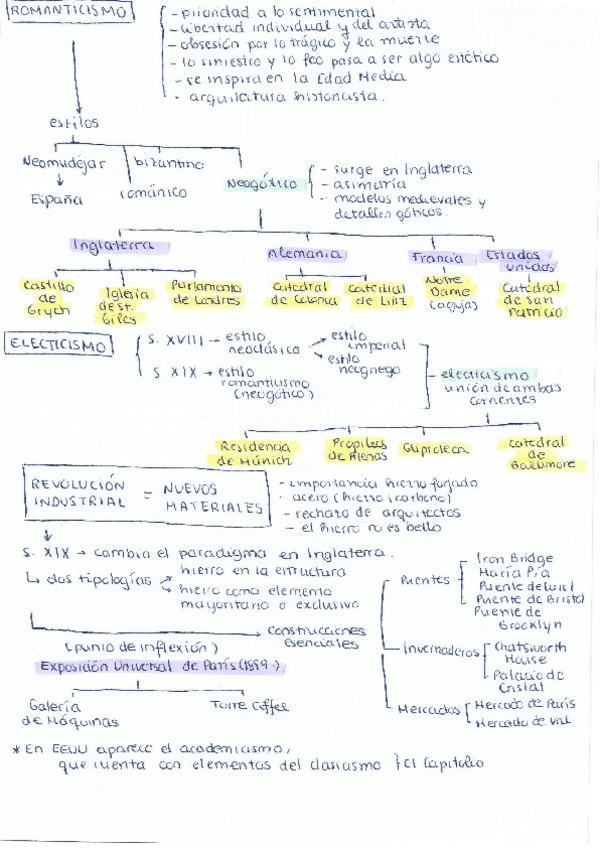 ROMANTICISMO
- prioridad a lo sentimental
- libertad individual y del artista
- obsesión por lo trágico y la muerte
- lo siniestro y lo feo pasa a ser algo estético
- se inspira en la Edad Media
- arquitectura historicista.
estilos
Neomudéjar
España
bizantino
románico
Neogótico
- surge en Inglaterra
- asimetría
- modelos medievales y
detalles góticos.
Inglaterra
Castillo
de
Iglesia
de St.
Giles
Parlamento
de Londres
Alemania
Catedral
de Colonia
Catedral
de Linz
Francia
Notre
Dame
(aguja)
Estados
unidos
Catedral
de San
Patricio
ELECTICISMO
S. XVIII → estilo
neoclásico
→ estilo
imperial
→ estilo
neogriego
S. XIX → estilo
romanticismo
(neogótico)
- electicismo
unión de ambas
corrientes
Residencia
de Múnich
Propileos
de Atenas
Glipioteca
Catedral
de
Baltimore
REVOLUCIÓN
INDUSTRIAL
= NUEVOS
MATERIALES
- importancia hierro forjado
- acero (hierro i carbono)
- rechazo de arquitectos
- el hierro no es bello
S. XIX → cambia el paradigma en Inglaterra.
↳ dos tipologías
hierro en la estructura
hierro como elemento
mayoritario o exclusivo
Construcciones
esenciales
Puentes
Iron Bridge
María Pía
Puente de Luis I
Puente de Bristol
Puente de
Brooklyn
Invernaderos
Chatsworth
House
Palacio de
Cristal
Mercados
Mercado de París
Mercado de Val.
(punto de inflexión)
Exposición Universal de París (1889)
Galería
de Máquinas
Torre Eiffel
* En EEUU aparece el academicismo,
que cuenta con elementos del clasicismo } El Capitolio